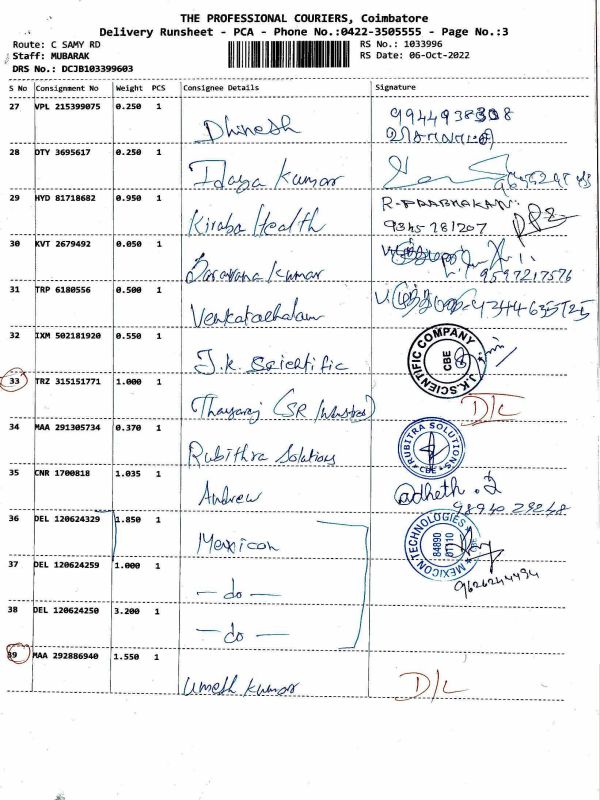 THE PROFESSIONAL COURIERS, Coimbatore
Delivery Runsheet - PCA - Phone No.:0422-3505555 - Page No.:3
Route: C SAMY RD
RS No.: 1033996
Staff: MUBARAK
RS Date: 06-Oct-2022
DRS No.: DCJB103399603
S No Consignment No Weight PCS Consignee Details Signature
27 VPL 215399075 0.250 1
Dhinesh 9944938308
28 DTY 3695617 0.250 1
Idaya Kumar
29 HYD 81718682 0.950 1
Kiraba Health R-PRABHAKAN 9345781207
30 KVT 2679492 0.050 1
Saravana Kumar 9597217576
31 TRP 6180556 0.500 1
Venkatachalam
32 IXM 502181920 0.550 1
J.K. Scientific J.K.SCIENTIFIC COMPANY CBE
33 TRZ 315151771 1.000 1
Thayaraj (SR D/L
34 MAA 291305734 0.370 1
Rubithra Solutions RUBITRA SOLUTIONS CBE
35 CNR 1700818 1.035 1
Andrew 98940 29248
36 DEL 120624329 1.850 1
Mexicon MEXICON TECHNOLOGIES CBE 84890 01110
37 DEL 120624259 1.000 1
— do — 9626244494
38 DEL 120624250 3.200 1
— do —
39 MAA 292886940 1.550 1
Umesh kumar D/L